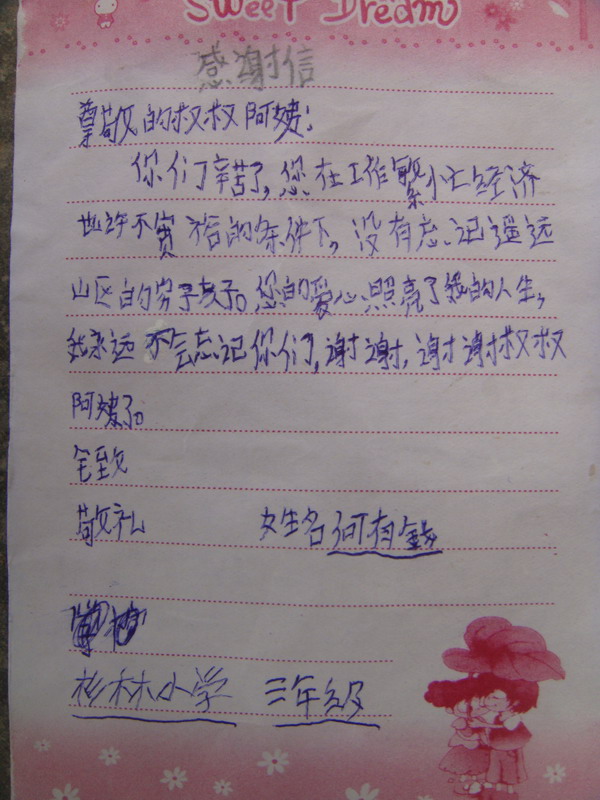 Sweet Dream
感谢信
尊敬的叔叔阿姨:
你们辛苦了,您在工作繁忙经济
也许不富裕的条件下,没有忘记遥远
山区的穷子孩子。您的爱心照亮了我的人生,
我永远不会忘记你们,谢谢,谢谢叔叔
阿姨了。
敬礼 姓名何有钱
杉林小学 三年级